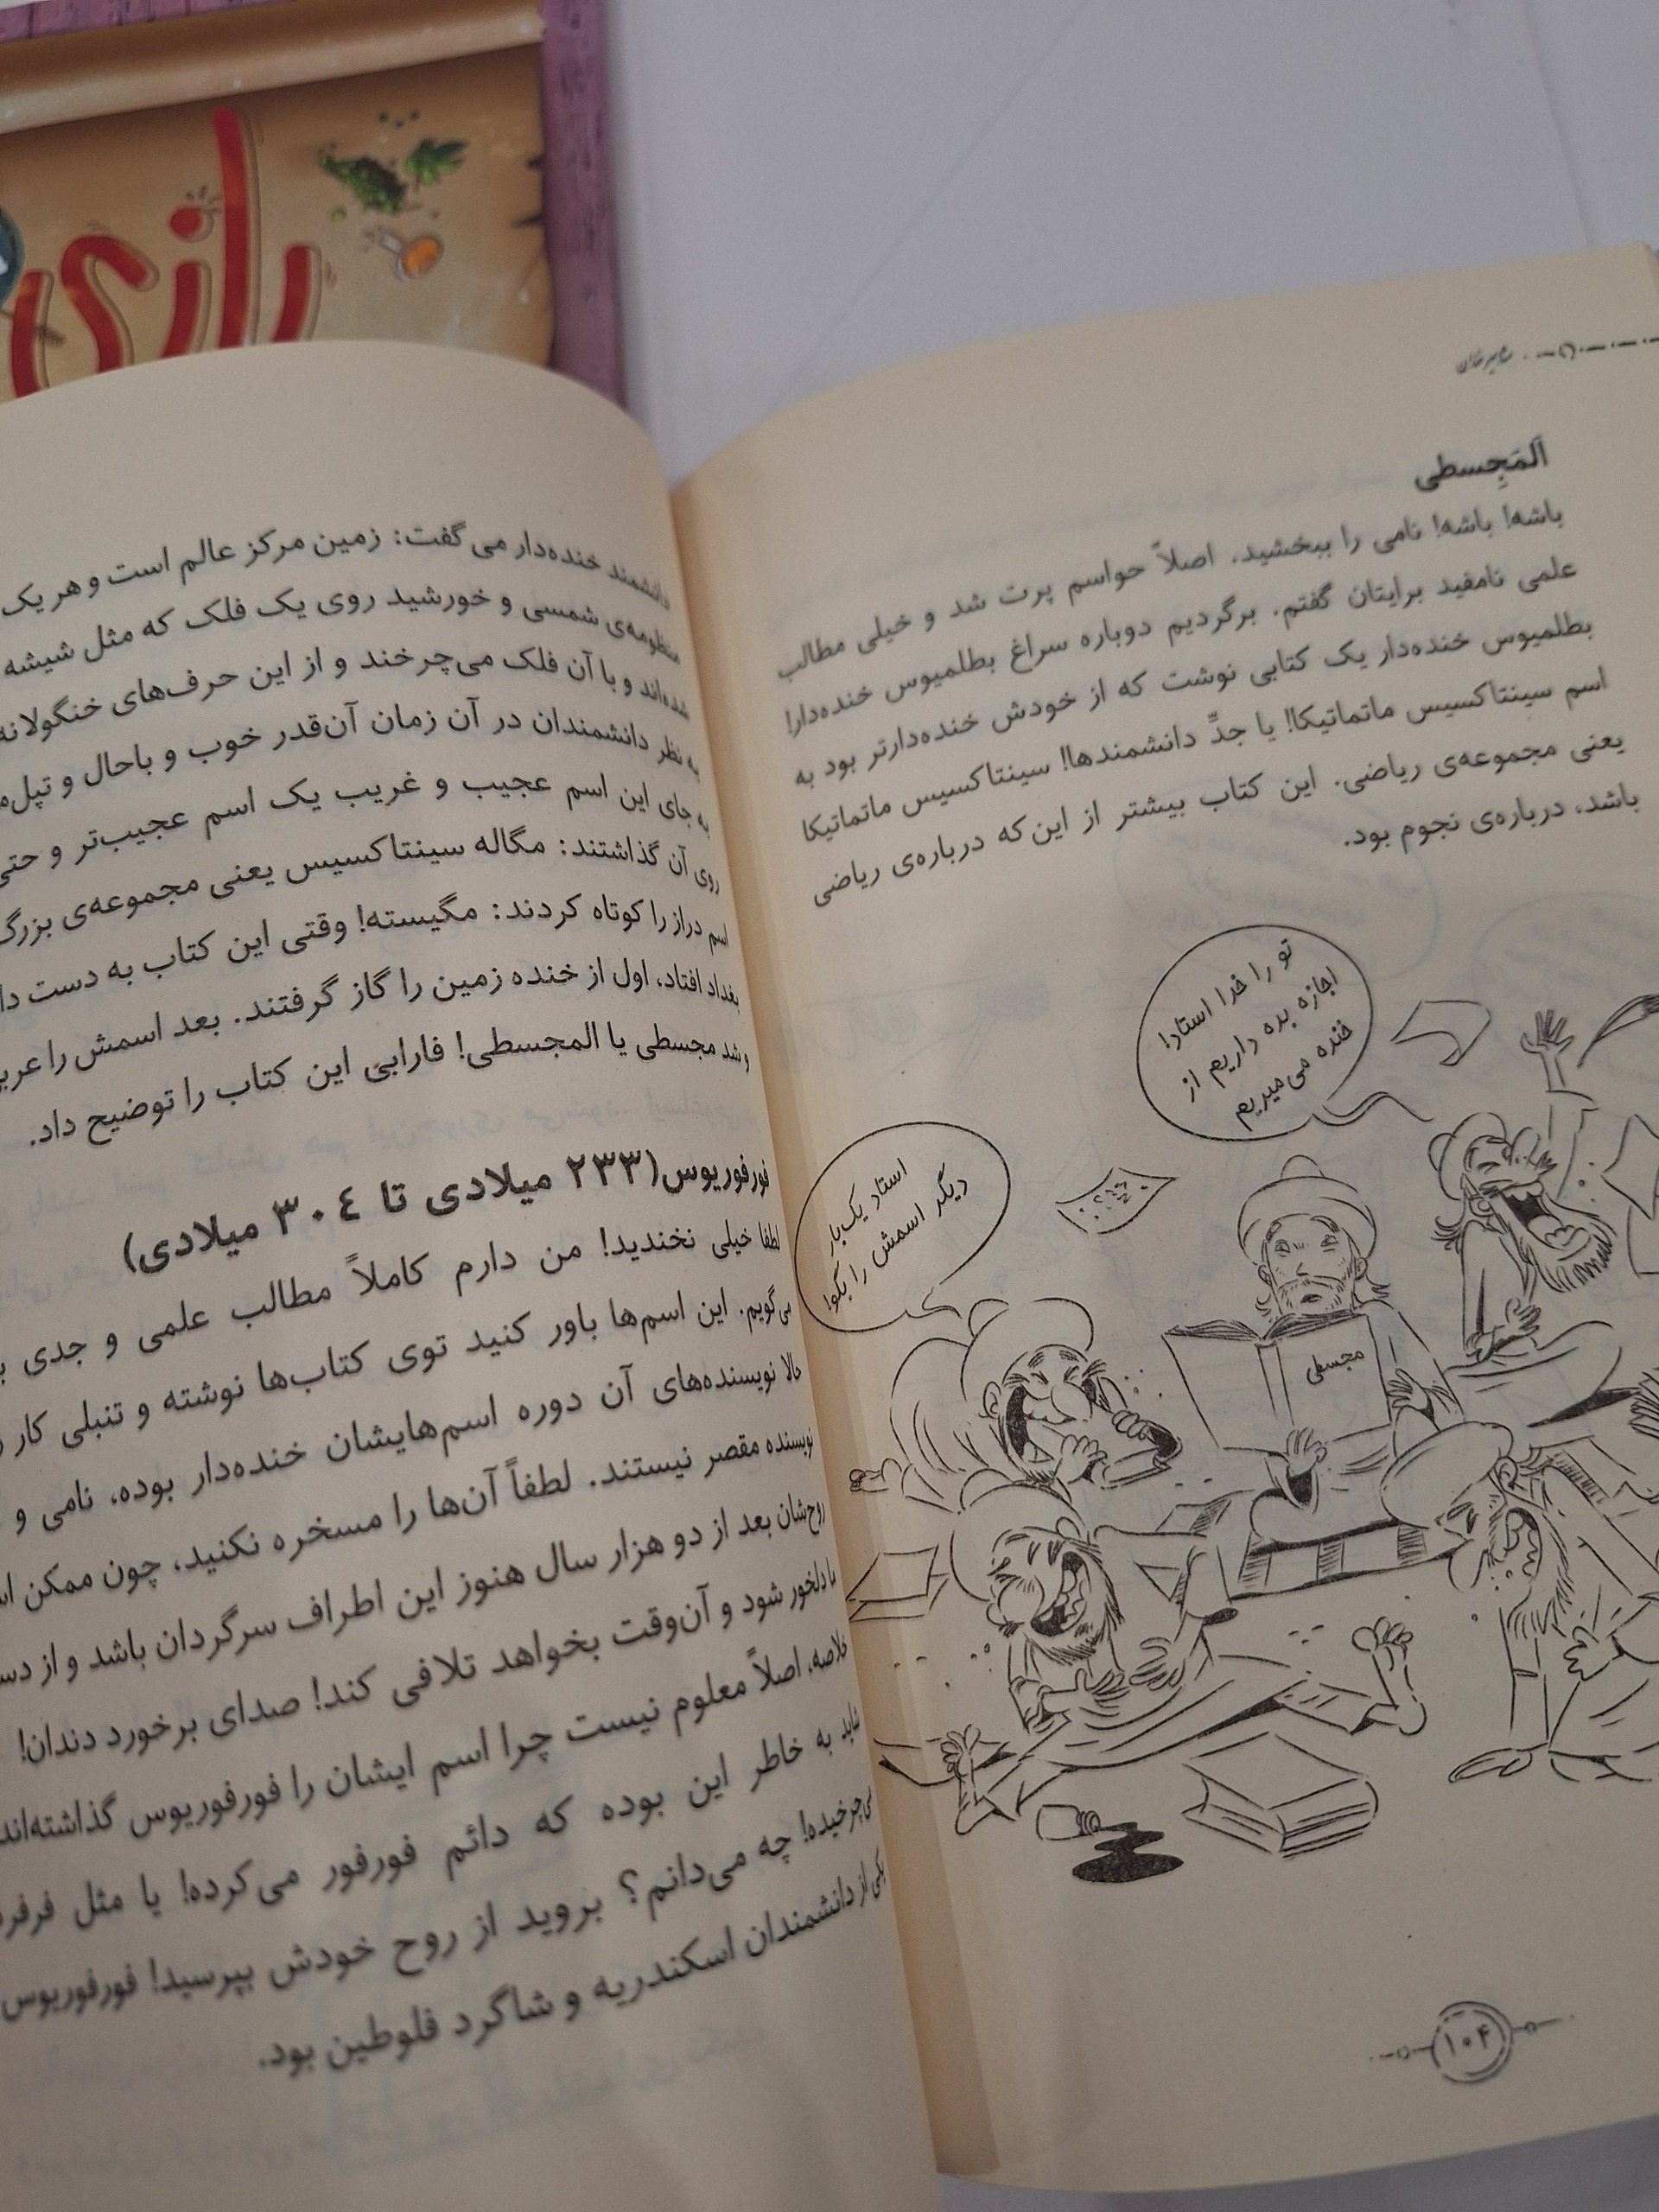 رازی
المَجِسطی
باشه! باشه! نامی را ببخشید. اصلاً حواسم پرت شد و خیلی مطالب
علمی نامفید برایتان گفتم. برگردیم دوباره سراغ بطلمیوس خنده‌دار!
بطلمیوس خنده‌دار یک کتابی نوشت که از خودش خنده‌دارتر بود به
اسم سینتاکسیس ماتماتیکا! یا جدِّ دانشمندها! سینتاکسیس ماتماتیکا
یعنی مجموعه‌ی ریاضی. این کتاب بیشتر از این‌که درباره‌ی ریاضی
باشد، درباره‌ی نجوم بود.
تو را خدا استاد!
اجازه بده داریم از
خنده می‌میریم
استاد یک‌بار
دیگر اسمش را بگو!
مجسطی
۱۰۴
دانشمند خنده‌دار می‌گفت: زمین مرکز عالم است و هر یک
منظومه‌ی شمسی و خورشید روی یک فلک که مثل شیشه
شده‌اند و با آن فلک می‌چرخند و از این حرف‌های خنگولانه
به نظر دانشمندان در آن زمان آن‌قدر خوب و باحال و
به جای این اسم عجیب و غریب یک اسم عجیب‌تر و حتی
روی آن گذاشتند: مگاله سینتاکسیس یعنی مجموعه‌ی
اسم دراز را کوتاه کردند: مگیسته! وقتی این کتاب به دست
بغداد افتاد، اول از خنده زمین را گاز گرفتند. بعد اسمش را
و شد مجسطی یا المجسطی! فارابی این کتاب را توضیح داد.
فورفوریوس(۲۳۳ میلادی تا ۳۰۴ میلادی)
لطفا خیلی نخندید! من دارم کاملاً مطالب علمی و جدی
می‌گویم. این اسم‌ها باور کنید توی کتاب‌ها نوشته و تنبلی کار
حالا نویسنده‌های آن دوره اسم‌هایشان خنده‌دار بوده، نامی و
نویسنده مقصر نیستند. لطفاً آن‌ها را مسخره نکنید، چون ممکن
روح‌شان بعد از دو هزار سال هنوز این اطراف سرگردان باشد و از
ما دلخور شود و آن‌وقت بخواهد تلافی کند! صدای برخورد دندان!
خلاصه، اصلاً معلوم نیست چرا اسم ایشان را فورفوریوس گذاشته‌اند
شاید به خاطر این بوده که دائم فورفور می‌کرده! یا مثل
می‌چرخیده! چه می‌دانم؟ بروید از روح خودش بپرسید! فورفوریوس
یکی از دانشمندان اسکندریه و شاگرد فلوطین بود.